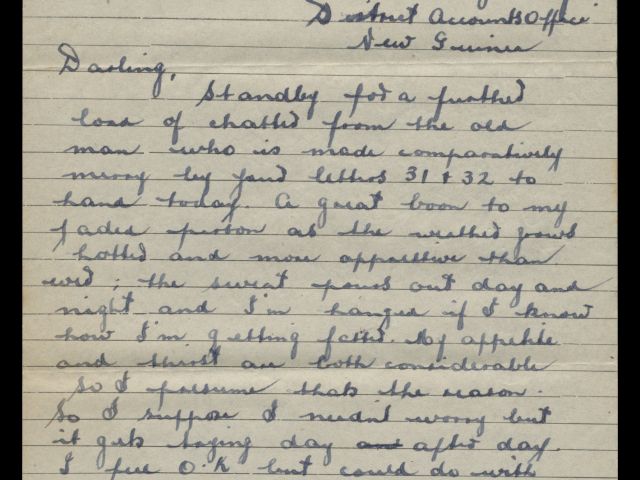 District Accounts Office
New Guinea
Darling,
Standby for a further
loss of chatter from the old
man who is made comparatively
merry by your letters 31 & 32 to
hand today. A great boon to my
jaded person as the weather grows
hotter and more oppressive than
ever; the sweat pours out day and
night and I'm hanged if I know
how I'm getting fatter. My appetite
and thirst are both considerable
so I presume thats the reason.
So I suppose I needn't worry but
it gets trying day and after day.
I feel O.K but could do with